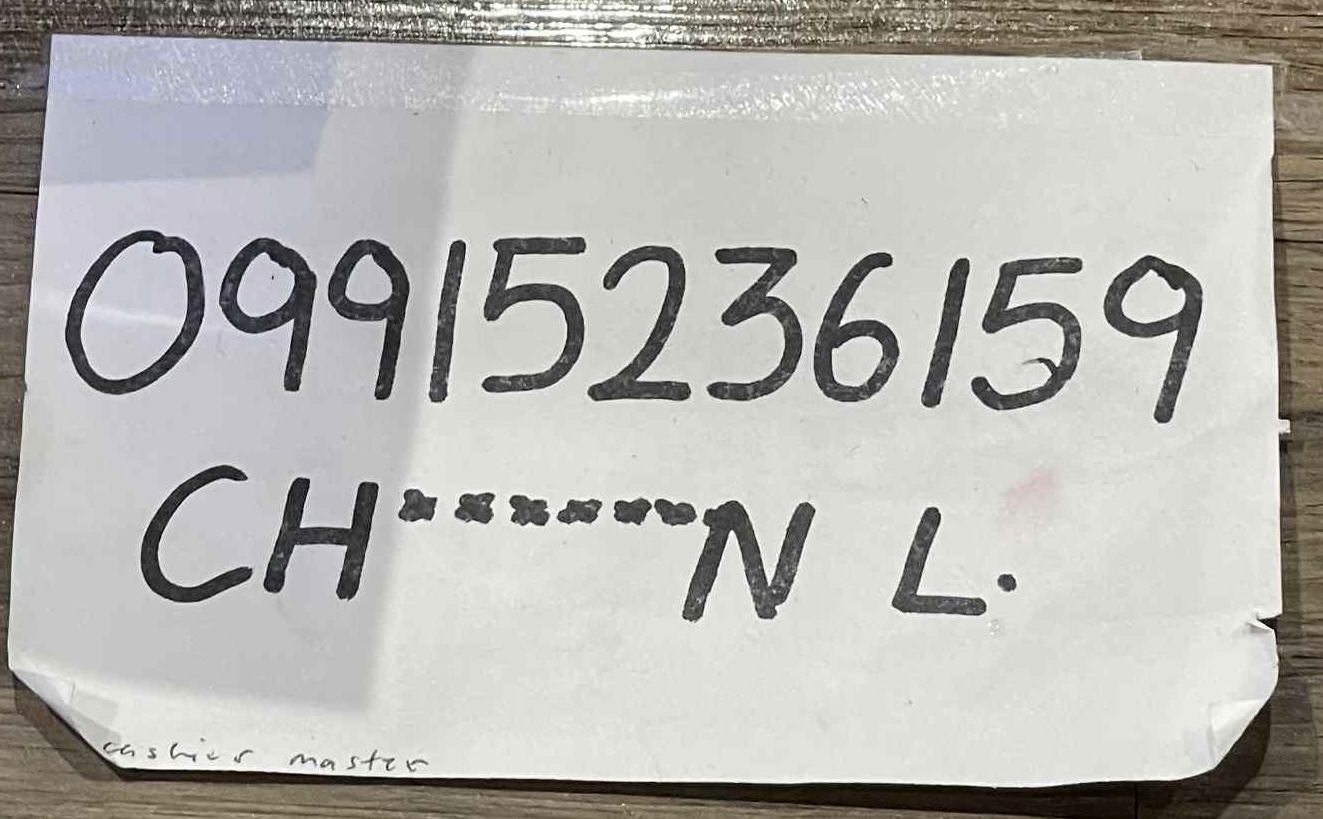 09915236159
CH······N L.
cashier master